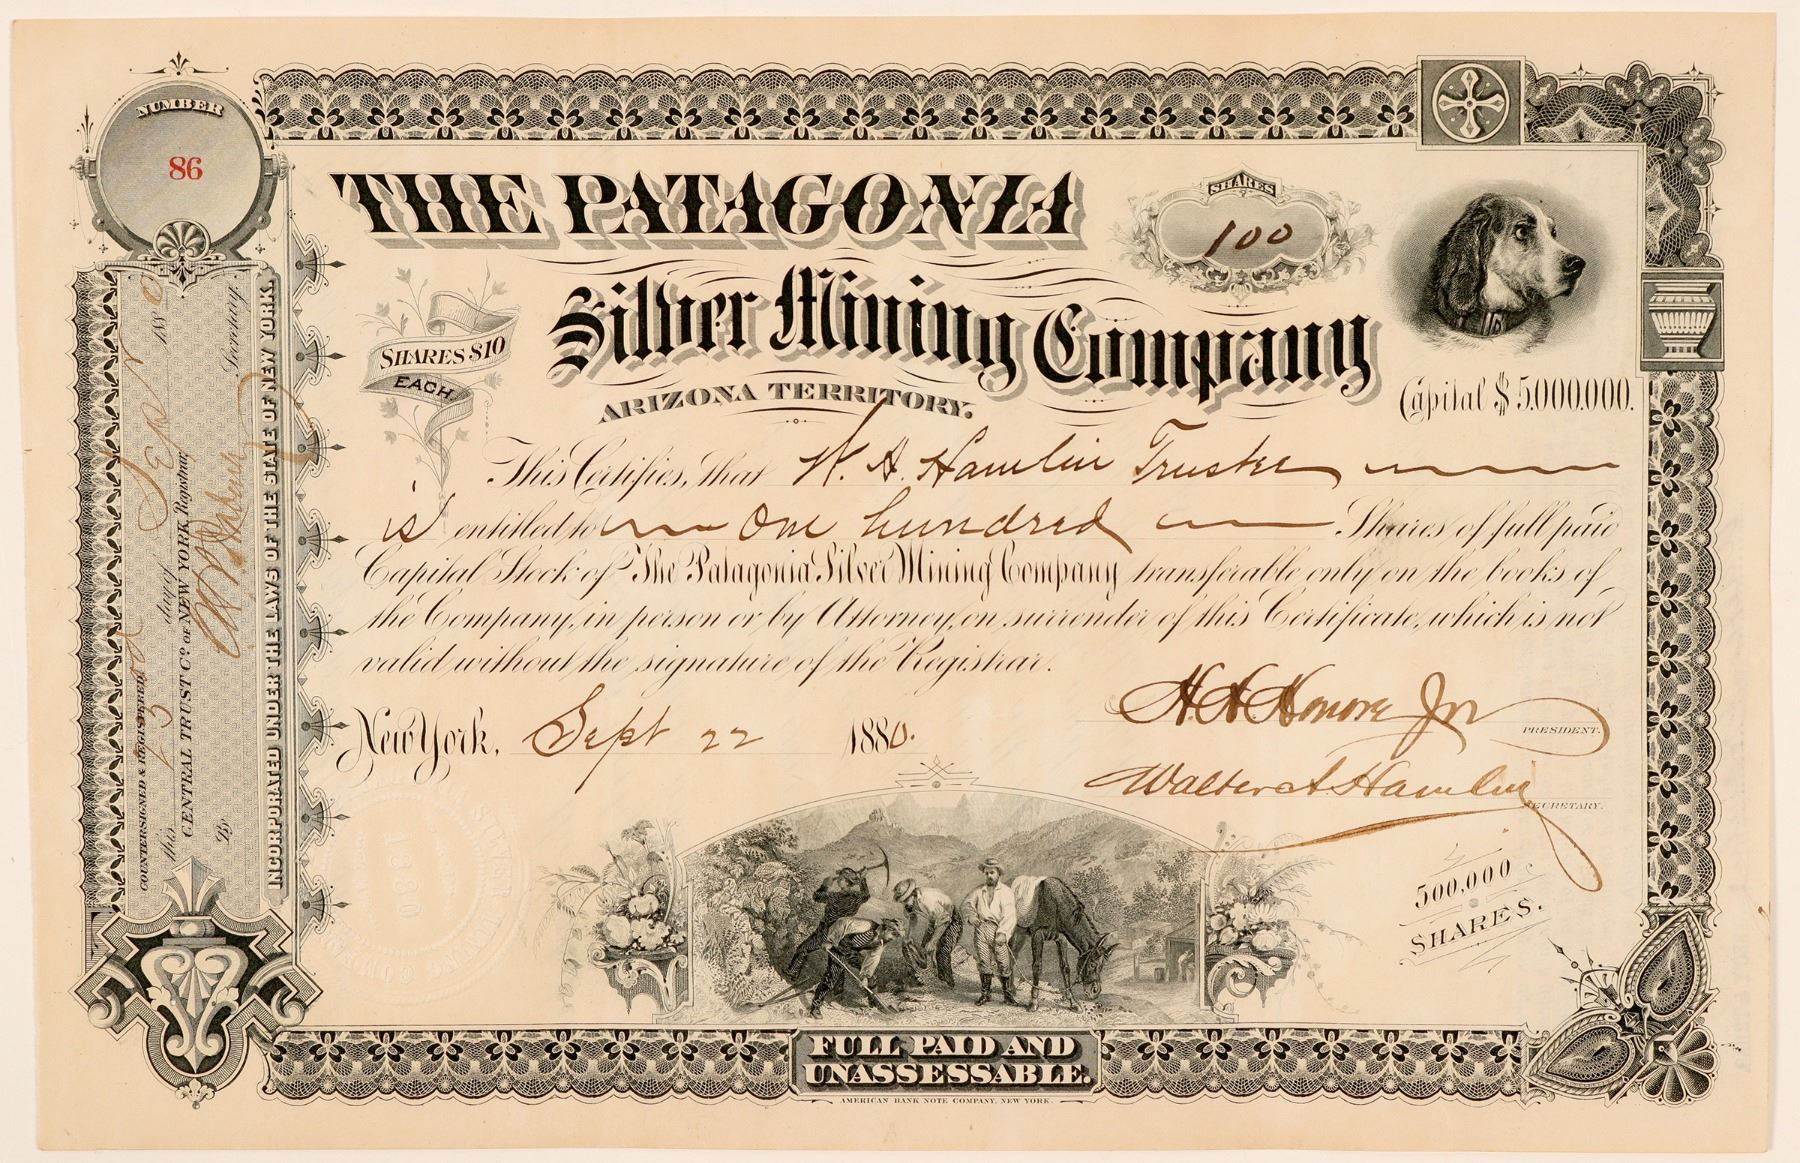 NUMBER
86
THE PATAGONIA
SHARES
100
Silver Mining Company
SHARES $10
EACH
ARIZONA TERRITORY.
Capital $5,000,000.
This Certifies, that W. A. Hamlin Trustee
is entitled to One hundred Shares of full paid
Capital Stock of The Patagonia Silver Mining Company transferable only on the books of
the Company, in person or by Attorney, on surrender of this Certificate, which is not
valid without the signature of the Registrar.
New York, Sept 22 1880.
H. H. Honore Jr
PRESIDENT.
Walter A. Hamlin
SECRETARY.
500,000
SHARES.
FULL PAID AND
UNASSESSABLE.
AMERICAN BANK NOTE COMPANY, NEW YORK.
COUNTERSIGNED & REGISTERED
this 23d day of Sept 1880
CENTRAL TRUST Co. OF NEW YORK, Registrar,
By Secretary.
INCORPORATED UNDER THE LAWS OF THE STATE OF NEW YORK.
SILVER MINING COMPANY
1880